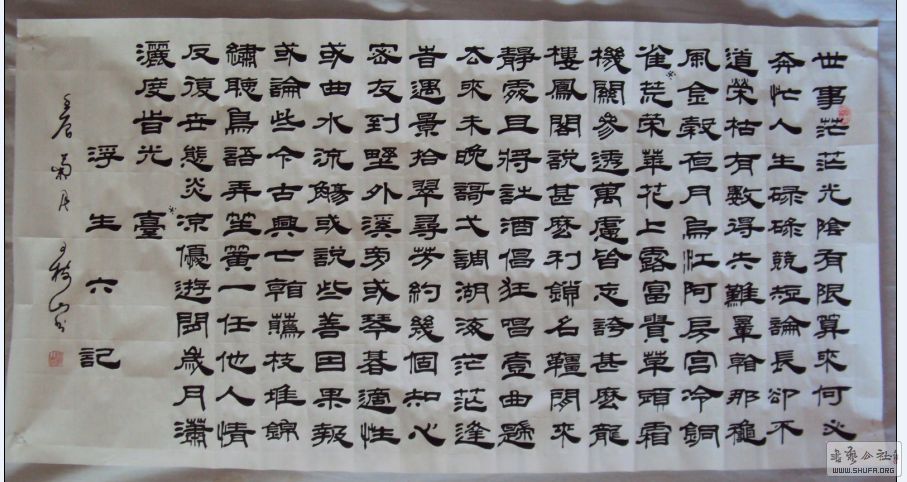 世事茫茫光陰有限算來何必
奔忙人生碌碌競短論長卻不
道榮枯有數得失難量看那穐
風金穀夜月烏江阿房宮冷銅
雀荒榮華花上露富貴草頭霜
機關參透萬慮皆忘誇甚麼龍
樓鳳閣說甚麼利鎖名韁閒來
靜處且將詩酒倡狂唱壹曲歸
去來未晚謌弌調湖海茫茫逢
旹遇景拾翠尋芳約幾個知心
密友到壄外溪旁或琴棊適性
或曲水流觴或說些善因果報
或論些今古興亡看蘤枝堆錦
繡聽鳥語弄笙簧一任他人情
反復世態炎涼優遊閒歲月瀟
灑度旹光 臺
浮生六記
菊月 樹山
WWW.SHUFA.ORG